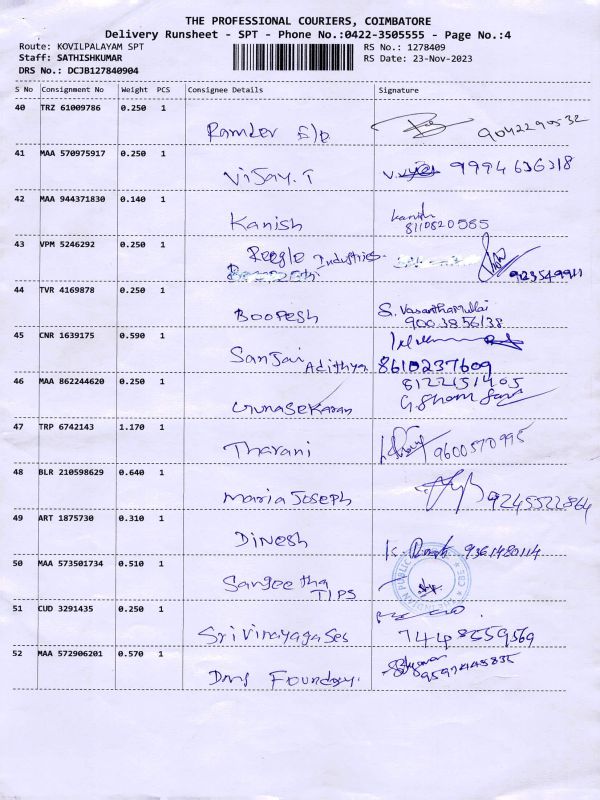 THE PROFESSIONAL COURIERS, COIMBATORE
Delivery Runsheet - SPT - Phone No.:0422-3505555 - Page No.:4
Route: KOVILPALAYAM SPT RS No.: 1278409
Staff: SATHISHKUMAR RS Date: 23-Nov-2023
DRS No.: DCJB127840904
S No Consignment No Weight PCS Consignee Details Signature
40 TRZ 61009786 0.250 1
Ramdev E/p 9042290532
41 MAA 570975917 0.250 1
Vijay.T 9994636318
42 MAA 944371830 0.140 1
Kanish
Kanish 8110820585
43 VPM 5246292 0.250 1
Reegle Industries.
44 TVR 4169878 0.250 1
Boopesh S. Vasanthamullai
9003856138
45 CNR 1639175 0.590 1
Sanjai Adithya 8610237609
46 MAA 862244620 0.250 1
8122151405
Gunasekaran
47 TRP 6742143 1.170 1
Tharani 9600570995
48 BLR 210598629 0.640 1
Maria Joseph 9245522864
49 ART 1875730 0.310 1
Dinesh 9361480114
50 MAA 573501734 0.510 1
Sangeetha
TIPS
51 CUD 3291435 0.250 1
Sri Vinayaga Ses 7448559569
52 MAA 572906201 0.570 1
Dms Foundry.